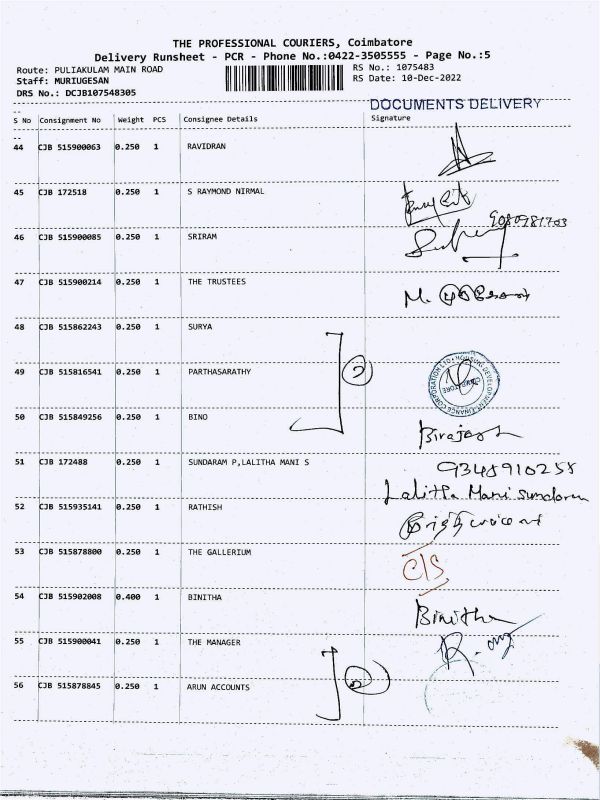 THE PROFESSIONAL COURIERS, Coimbatore
Delivery Runsheet - PCR - Phone No.:0422-3505555 - Page No.:5
Route: PULIAKULAM MAIN ROAD
Staff: MURIUGESAN
DRS No.: DCJB107548305
RS No.: 1075483
RS Date: 10-Dec-2022
DOCUMENTS DELIVERY
S No Consignment No Weight PCS Consignee Details Signature
44 CJB 515900063 0.250 1 RAVIDRAN
45 CJB 172518 0.250 1 S RAYMOND NIRMAL
9080981703
46 CJB 515900085 0.250 1 SRIRAM
47 CJB 515900214 0.250 1 THE TRUSTEES
48 CJB 515862243 0.250 1 SURYA
49 CJB 515816541 0.250 1 PARTHASARATHY
HOUSING DEVELOPMENT FINANCE CORPORATION LTD
50 CJB 515849256 0.250 1 BINO
51 CJB 172488 0.250 1 SUNDARAM P,LALITHA MANI S
9348910258
Lalitha Mani Sundaram
52 CJB 515935141 0.250 1 RATHISH
53 CJB 515878800 0.250 1 THE GALLERIUM C/S
54 CJB 515902008 0.400 1 BINITHA Binitha
55 CJB 515900041 0.250 1 THE MANAGER
56 CJB 515878845 0.250 1 ARUN ACCOUNTS